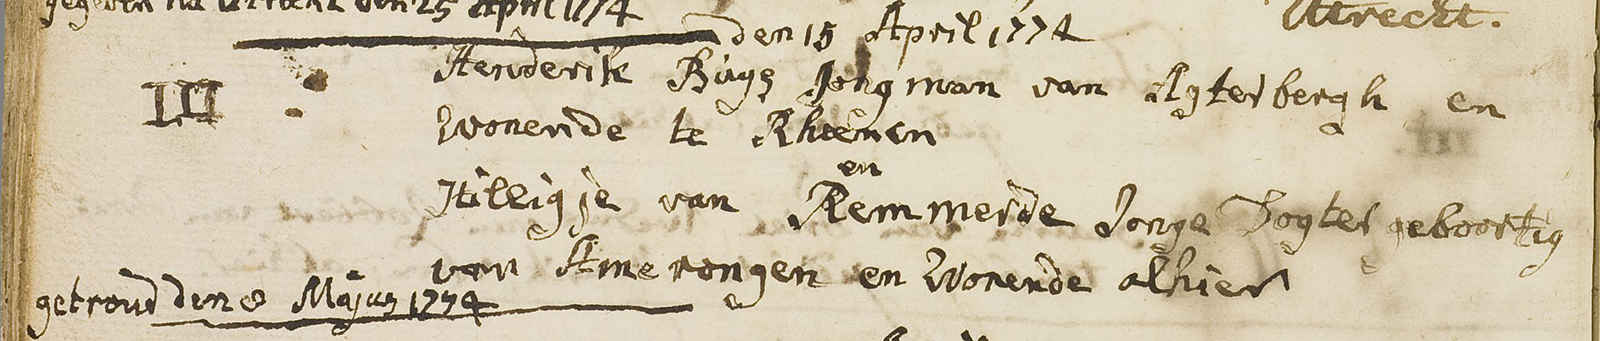 gegeven na Utrecht den 25 April 1774
Utrecht.
den 15 April 1774
III
Henderik Buys Jongman van Agterbergh en
Wonende te Rheenen
en
Hilligje van Remmerde Jonge Dogter geboortig
van Amerongen en Wonende alhier
getroud den 8 Majus 1774